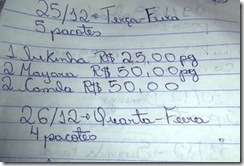 25/12 → Terça-Feira
5 pacotes
1 Jukinha R$ 25,00 pg
2 Mayara R$ 50,00 pg
2 Camila R$ 50,00
26/12 → Quarta-Feira
4 pacotes